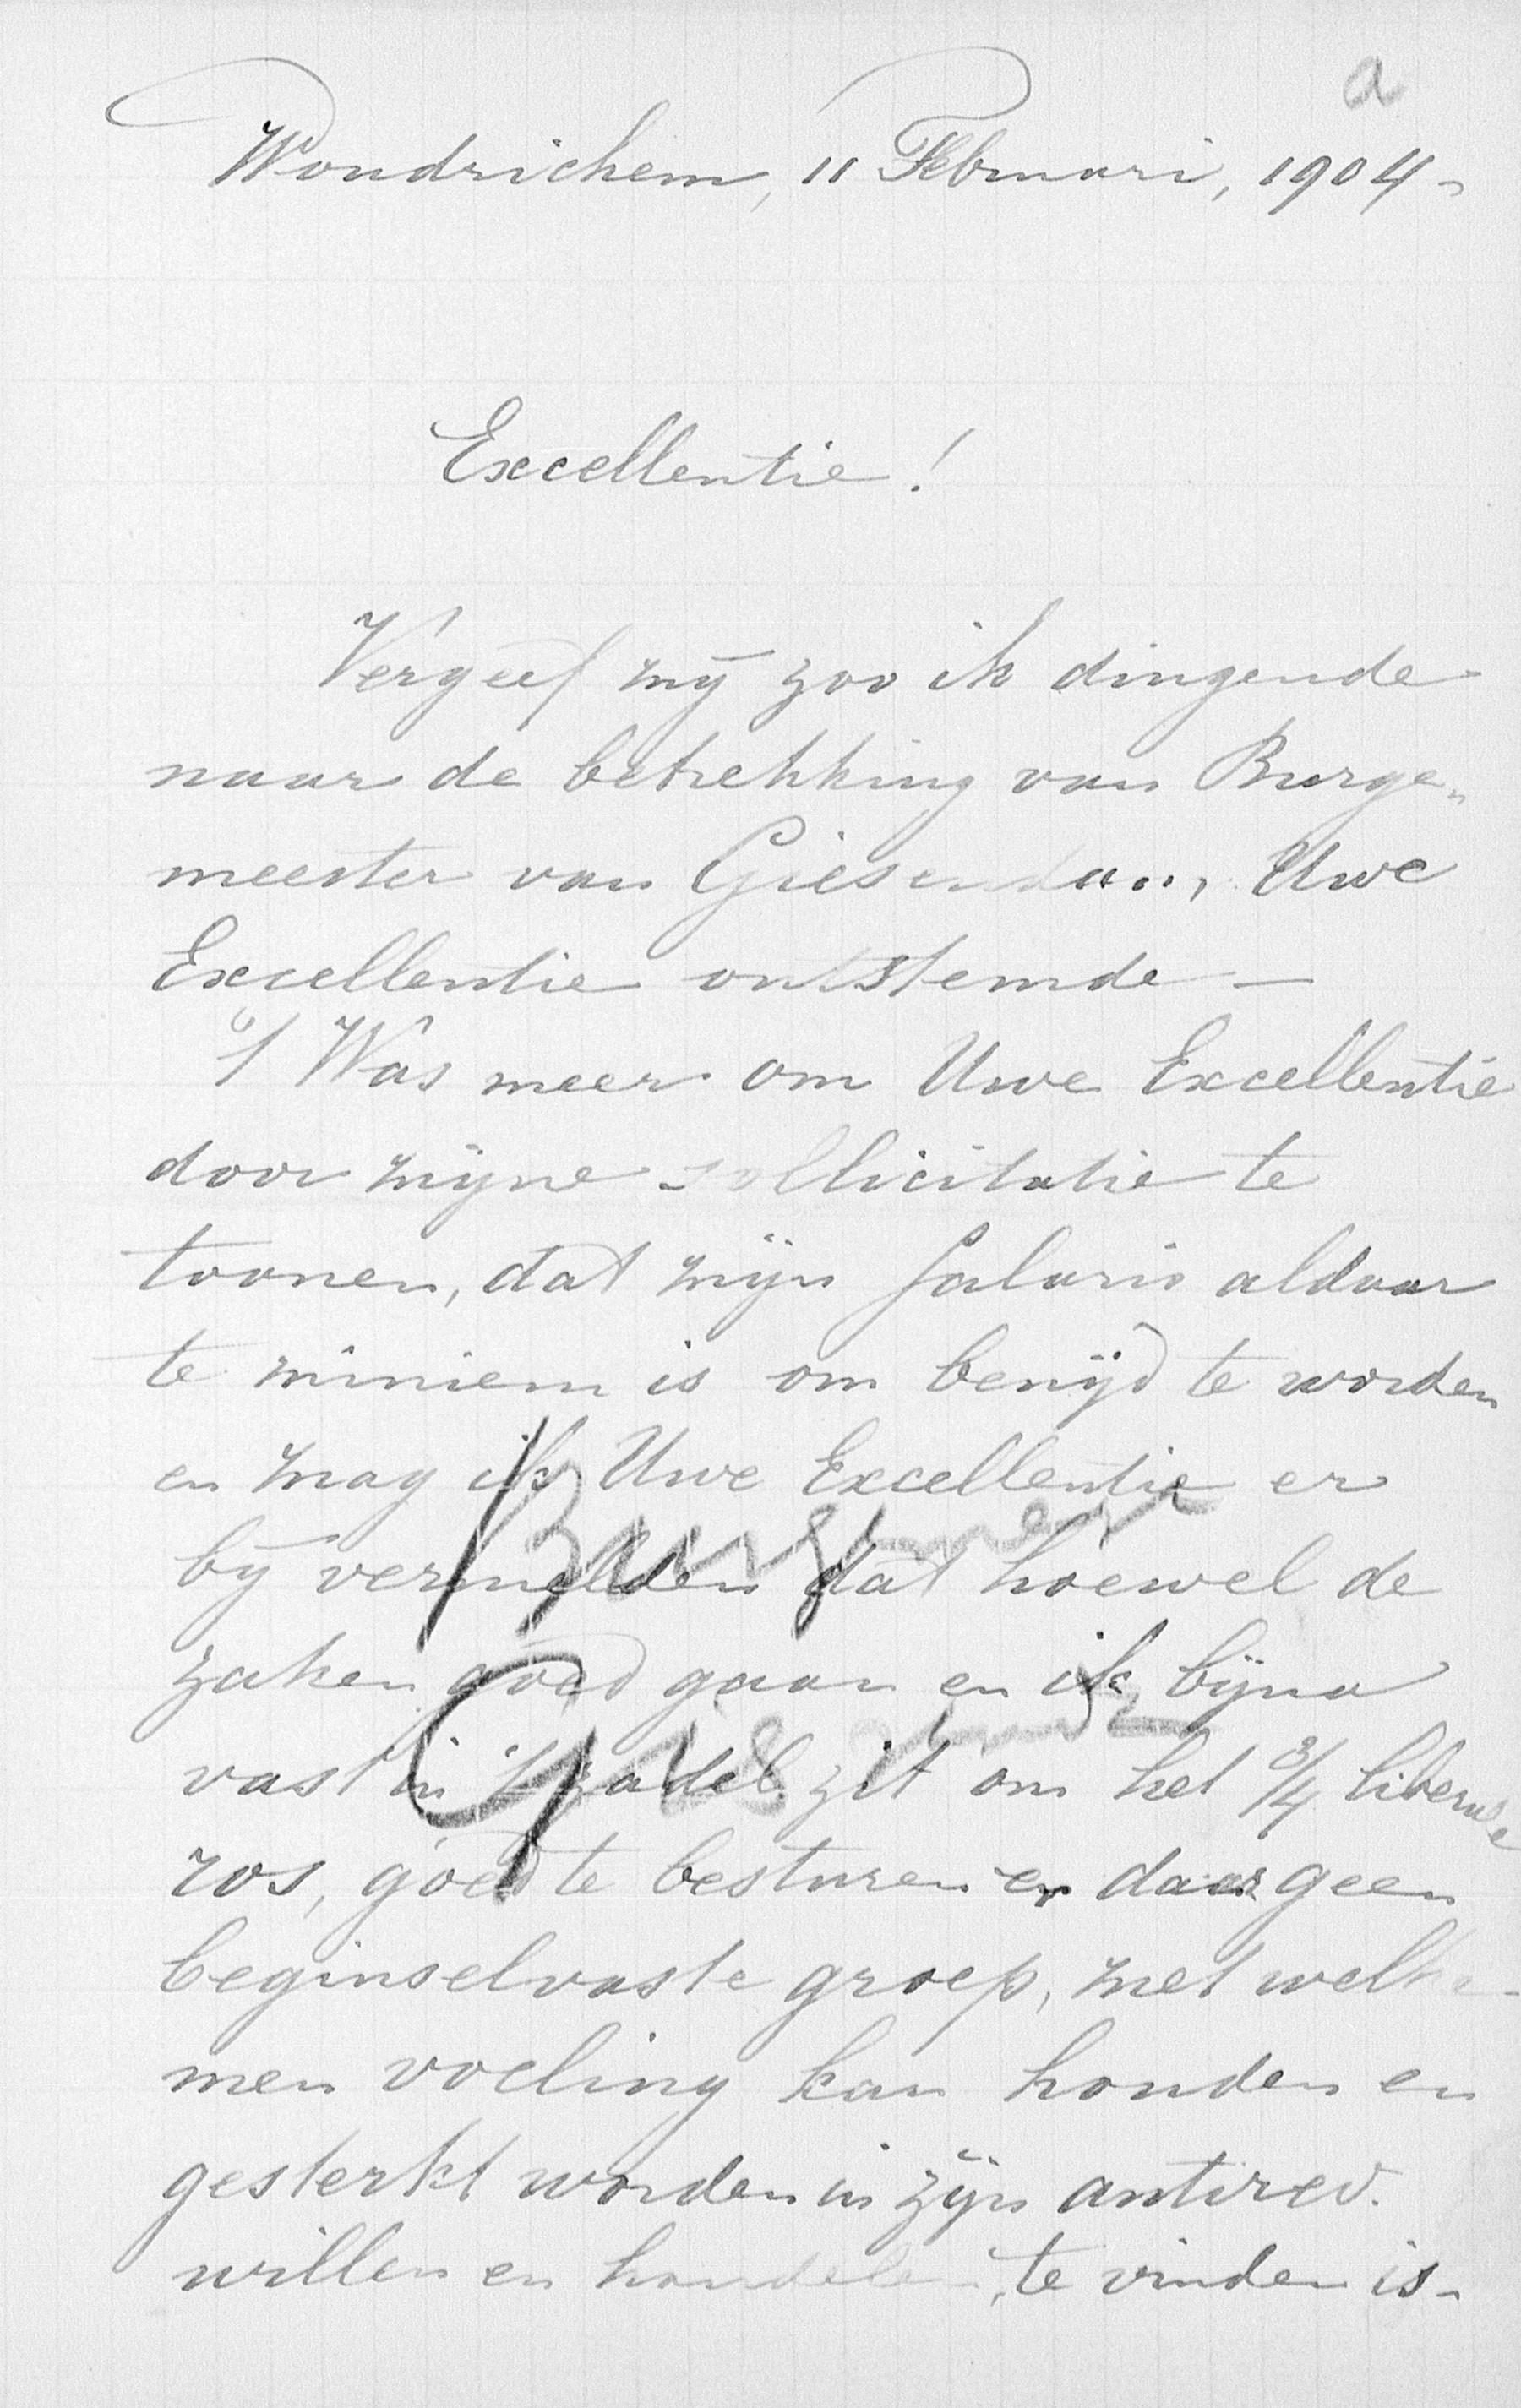 a
Woudrichem, 11 Februari, 1904 -
Excellentie!
Vergeef mij zoo ik dingende
naar de betrekking van Burge„
meester van Giesendam, Uwe
Excellentie ontstemde —
't Was meer om Uwe Excellentie
door mijne sollicitatie te
toonen, dat mijn salaris aldaar
te miniem is om benijd te worden
en mag ik Uwe Excellentie er
bij vermelden dat hoewel de
zaken goed gaan en ik bijna
vast in 't zadel zit om het 3/4 liberale
ros, goed te besturen er daar geen
beginselvaste groep, met welke
men voeling kan houden en
gesterkt worden in zijn antirev.
willen en handelen, te vinden is -